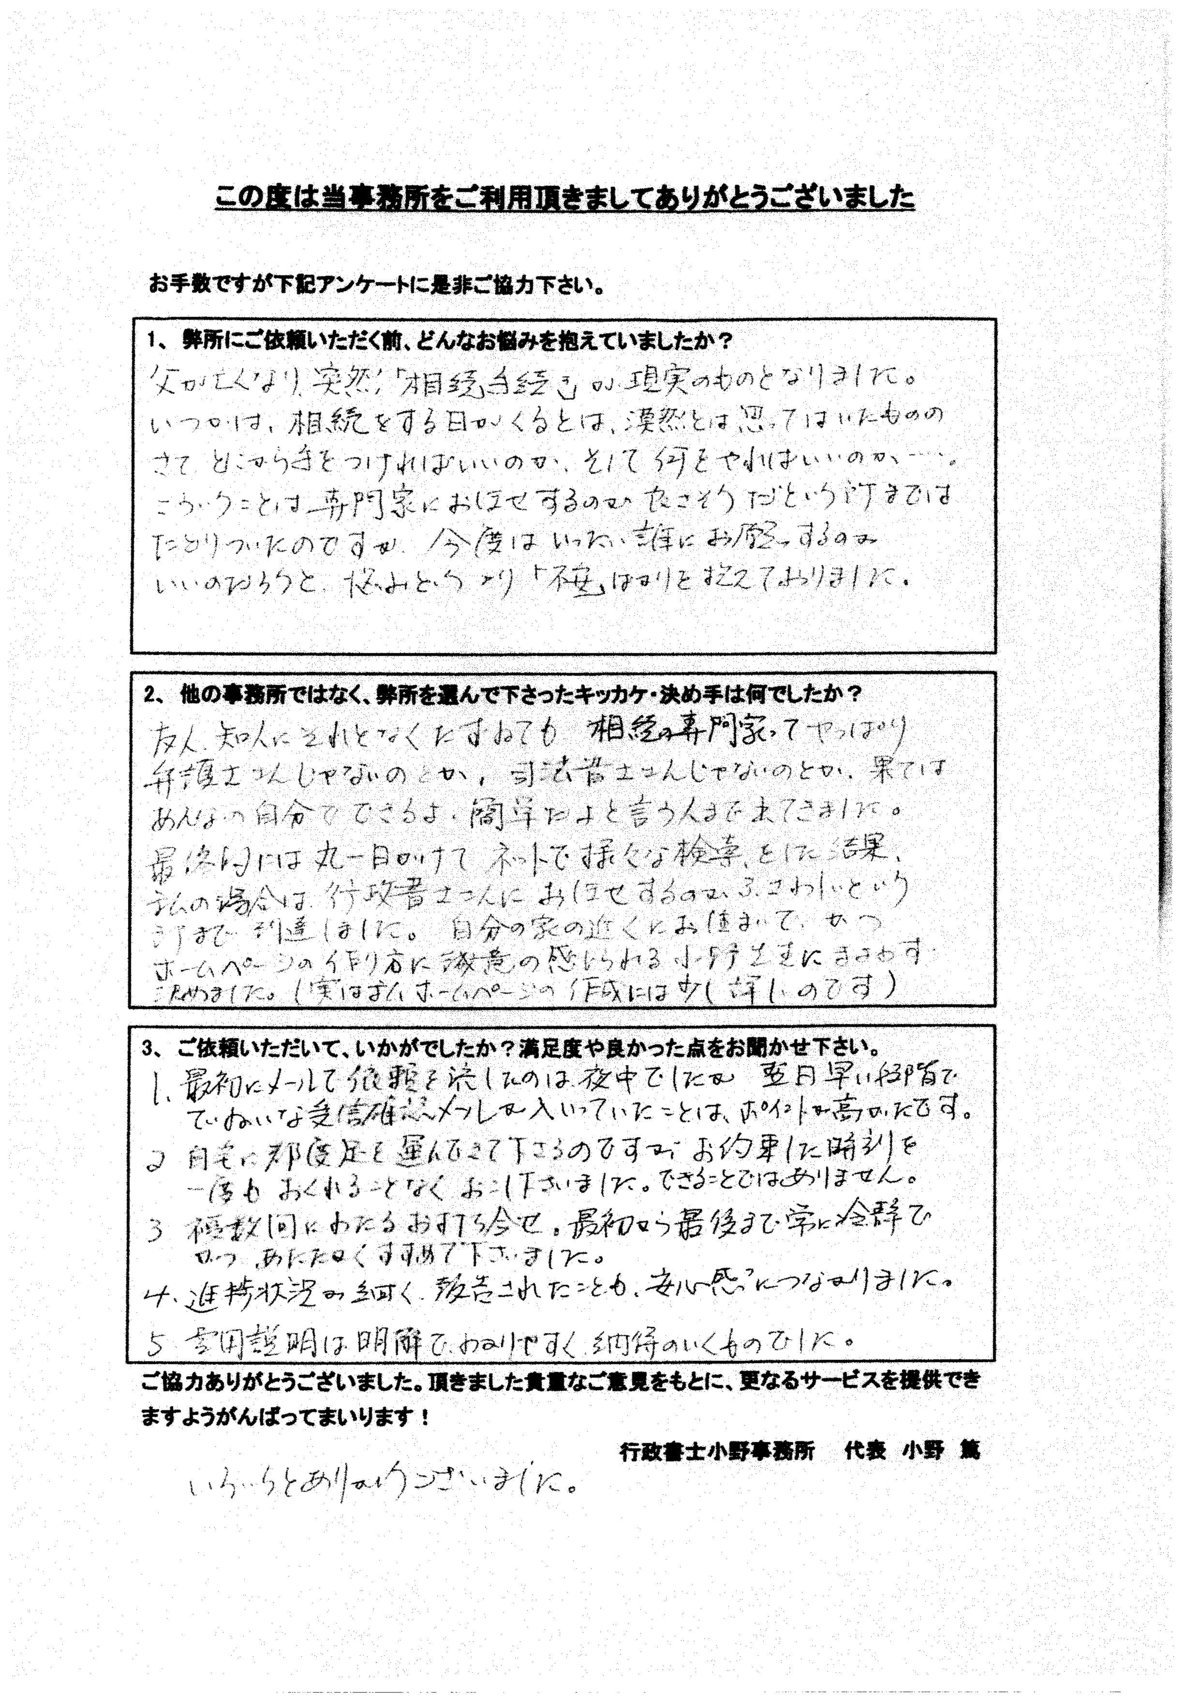 この度は当事務所をご利用頂きましてありがとうございました
お手数ですが下記アンケートに是非ご協力下さい。
1、弊所にご依頼いただく前、どんなお悩みを抱えていましたか？
父が亡くなり、突然「相続手続き」が現実のものとなりました。
いつかは、相続をする日がくるとは、漠然とは思ってはいたものの
さて、どこから手をつければいいのか、そして何をやればいいのか…。
こういうことは専門家におまかせするのがよさそうだという所までは
たどりついたのですが、今度はいったい誰にお願いするのが
いいのだろうと、悩みというより「不安」ばかりを抱えておりました。
2、他の事務所ではなく、弊所を選んで下さったキッカケ・決め手は何でしたか？
友人、知人にそれとなくたずねても 相続の専門家ってやっぱり
弁護士さんじゃないのとか、司法書士さんじゃないのとか、果ては
あんなの自分でできるよ、簡単だよと言う人まで出てきました。
最終的には丸一日かけてネットで様々な検索をした結果、
私の場合は、行政書士さんにおまかせするのがふさわしいという
所まで到達しました。自分の家の近くにお住まいで、かつ
ホームページの作り方に誠意の感じられる小野先生にまよわず
決めました。（実は私、ホームページの作成には少し詳しいのです）
3、ご依頼いただいて、いかがでしたか？満足度や良かった点をお聞かせ下さい。
1. 最初にメールで依頼を流したのは夜中でしたが 翌日早い段階で
ていねいな受信確認メールが入いっていたことは、ポイントが高かったです。
2 自宅に都度足を運んできて下さるのですが、お約束した時刻を
一度もおくれることなくおこし下さいました。できることではありません。
3 複数回にわたるお打ち合せ。最初から最後まで常に冷静で
かつ、あたたかくすすめて下さいました。
4、進捗状況が細かく、報告されたことも、安心感につながりました。
5 費用説明は明解で、わかりやすく、納得のいくものでした。
ご協力ありがとうございました。頂きました貴重なご意見をもとに、更なるサービスを提供でき
ますようがんばってまいります！
行政書士小野事務所　代表　小野　篤
いろいろとありがとうございました。